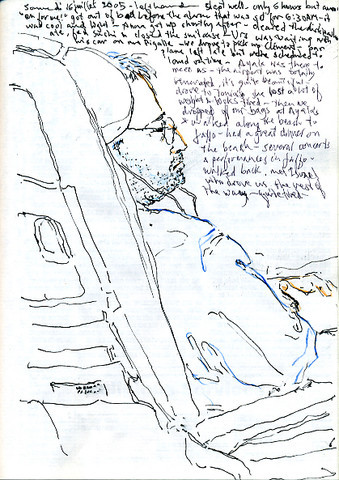 16 juillet 2005 - left - slept well - only 6 hours but
"on form" got out of bed before the alarm that was go for 6:30AM - it
was cool and light - Anne got up shortly after - cleared the
ate, fed Sushi & closed the suitcase - Urs was waiting with
his car on rue Pigalle - we drove to pick up Clément -
plane left late but with the scheduled
land on time - Ayala was there to
meet us - the airport was totally
renovated, it's quite beautiful -
drove to Tonia's, she lost a lot of
weight & looks tired - then we
dropped off our bags at Ayala's
& walked along the beach to
Jaffo - had a great dinner on
the beach - several concerts
& performances in Jaffo -
walked back, met
who drove us the rest of
the way - quite tired -